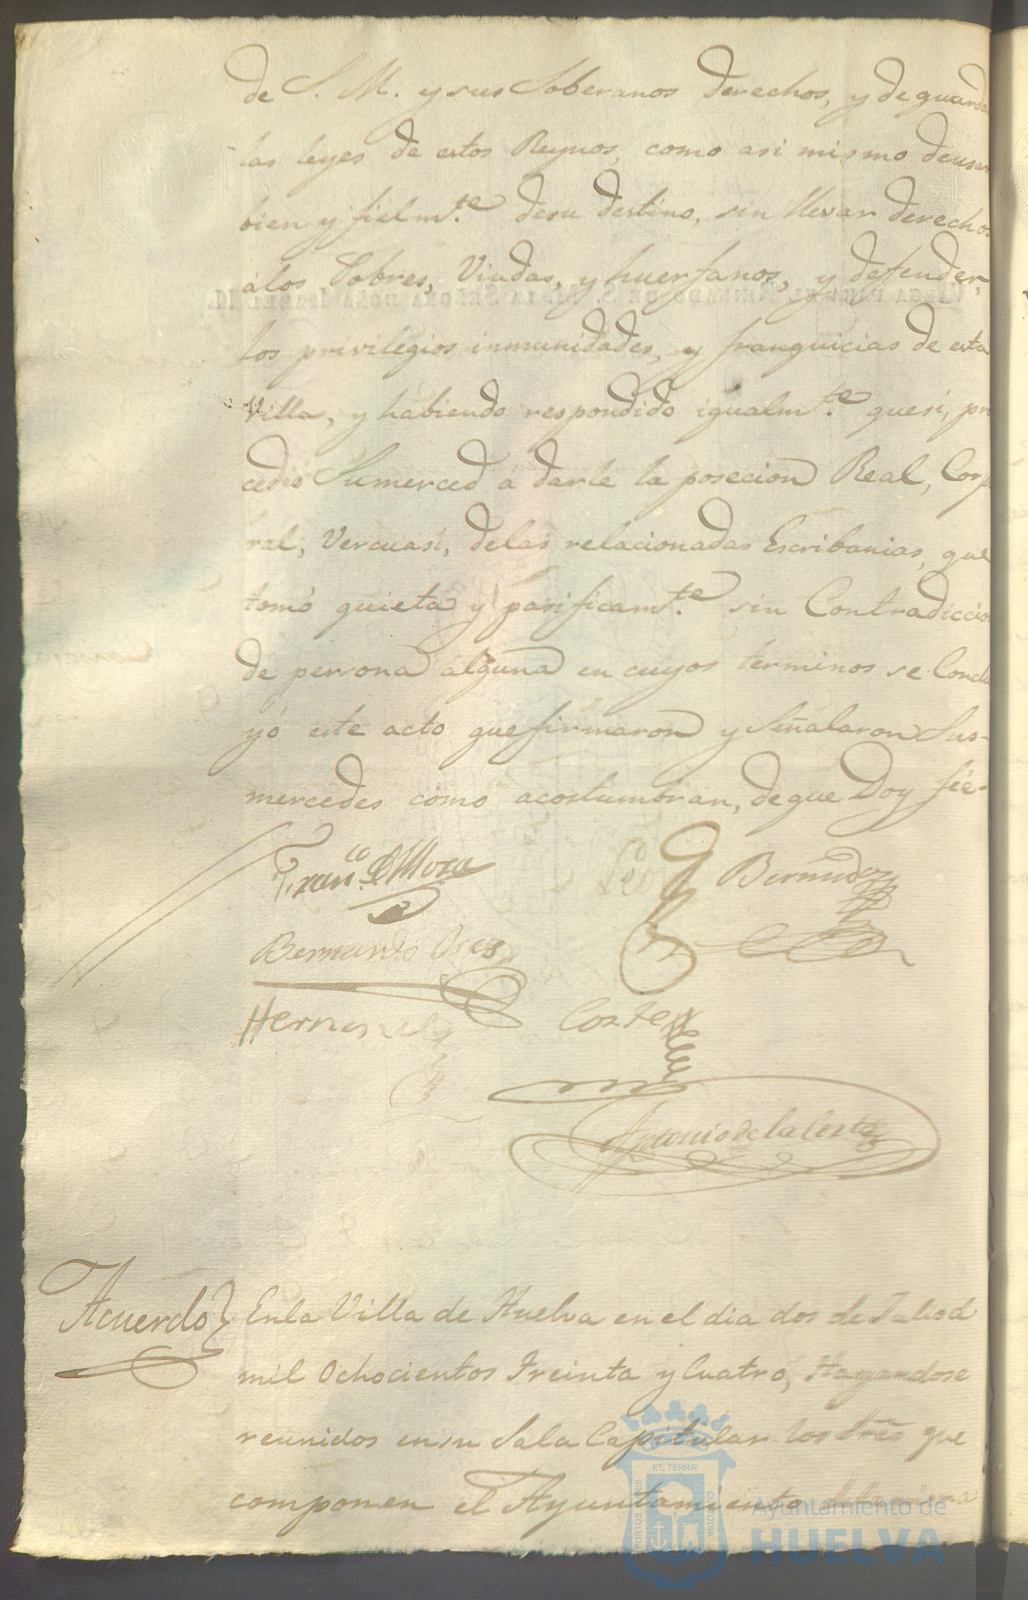 de S. M. y sus Soberanos derechos, y de guarda
las leyes de estos Reynos, como asi mismo deusar
bien y fielm.te desu destino, sin llevar derechos
alos Pobres, Viudas, y huerfanos, y defender,
los privilegios inmunidades, y franquicias de esta
Villa, y habiendo respondido igualm.te quesi, pro
cedio Sumerced á darle la posecion Real, Corpo
ral, Vercuasi, delas relacionadas Escribanias, que
tomó quieta y pasificamt.e sin Contradiccion
de persona alguna en cuyos terminos se Conclu
yó este acto que firmaron y Señalaron Sus-
mercedes como acostumbran, deque Doy feé-
Fran.co D Mora
Bermudez
Bernardo
Hernandez
Cortes
Antonio de la Corte
Acuerdo
Enla Villa de Huelva en el dia dos de Julio d
mil Ochocientos Treinta y Cuatro, Hayandose
reunidos ensu Sala Capitular los Sres que
componen el Ayuntamiento
ET TERRA
Ayuntamiento de
HUELVA